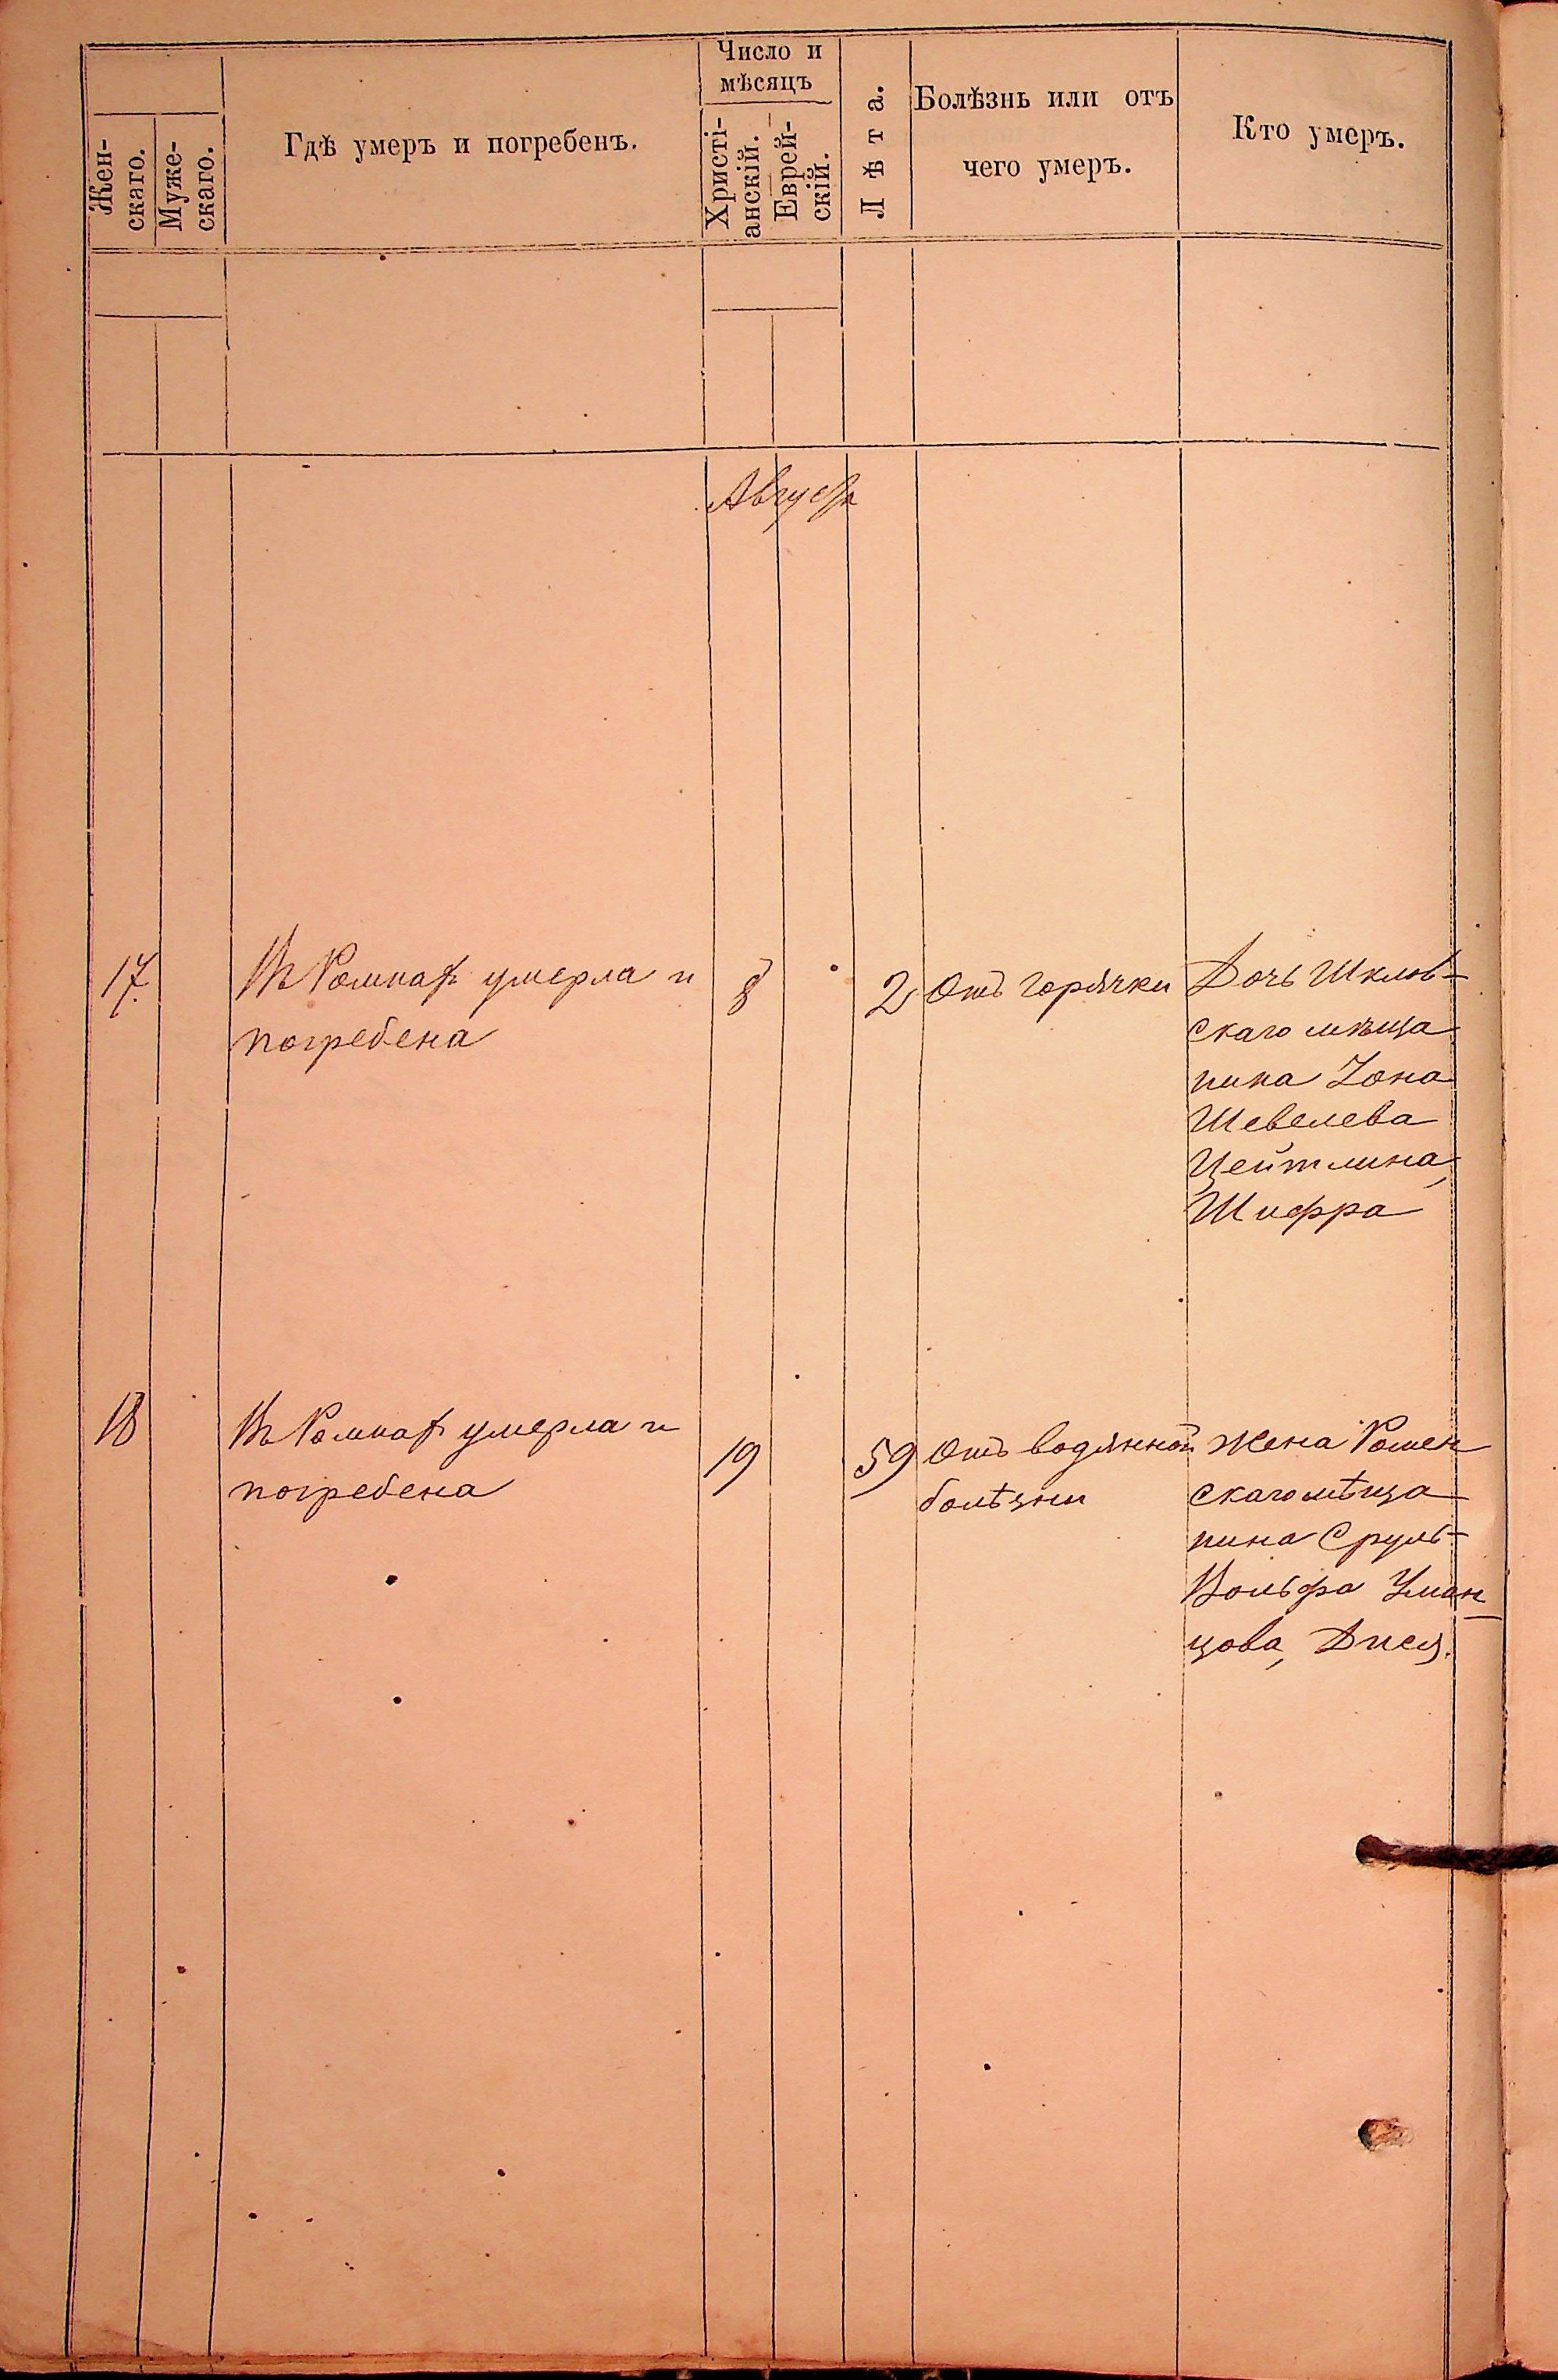 Жен-
скаго.
Муже-
скаго.
Гдѣ умеръ и погребенъ.
Число и
мѣсяцъ
Христі-
анскій.
Еврей-
скій.
Лѣта.
Болѣзнь или отъ
чего умеръ.
Кто умеръ.
Августа
17.
Въ Ромнахъ умерла и
погребена
8
2
Отъ горячки
Дочь Шклов-
скаго мѣща
нина Зона
Шевелева
Цейтлина,
Шифра
18
Въ Ромнахъ умерла и
погребена
19
59
Отъ водянной
болѣзни
Жена Ромен
скаго мѣща
нина Сруль-
Вольфа Уман
цова,